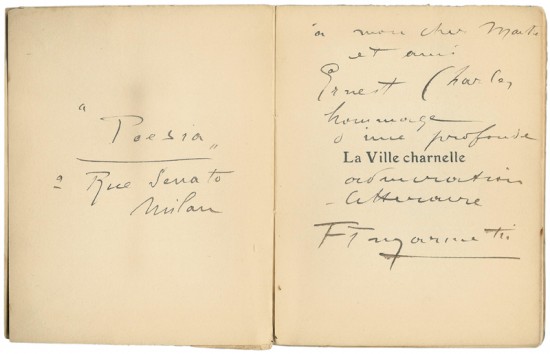 "Poesia"
2 Rue Senato
Milan
à mon cher Maître
et ami
Ernest Charles
hommage
d'une profonde
La Ville charnelle
admiration
littéraire
F.T. Marinetti